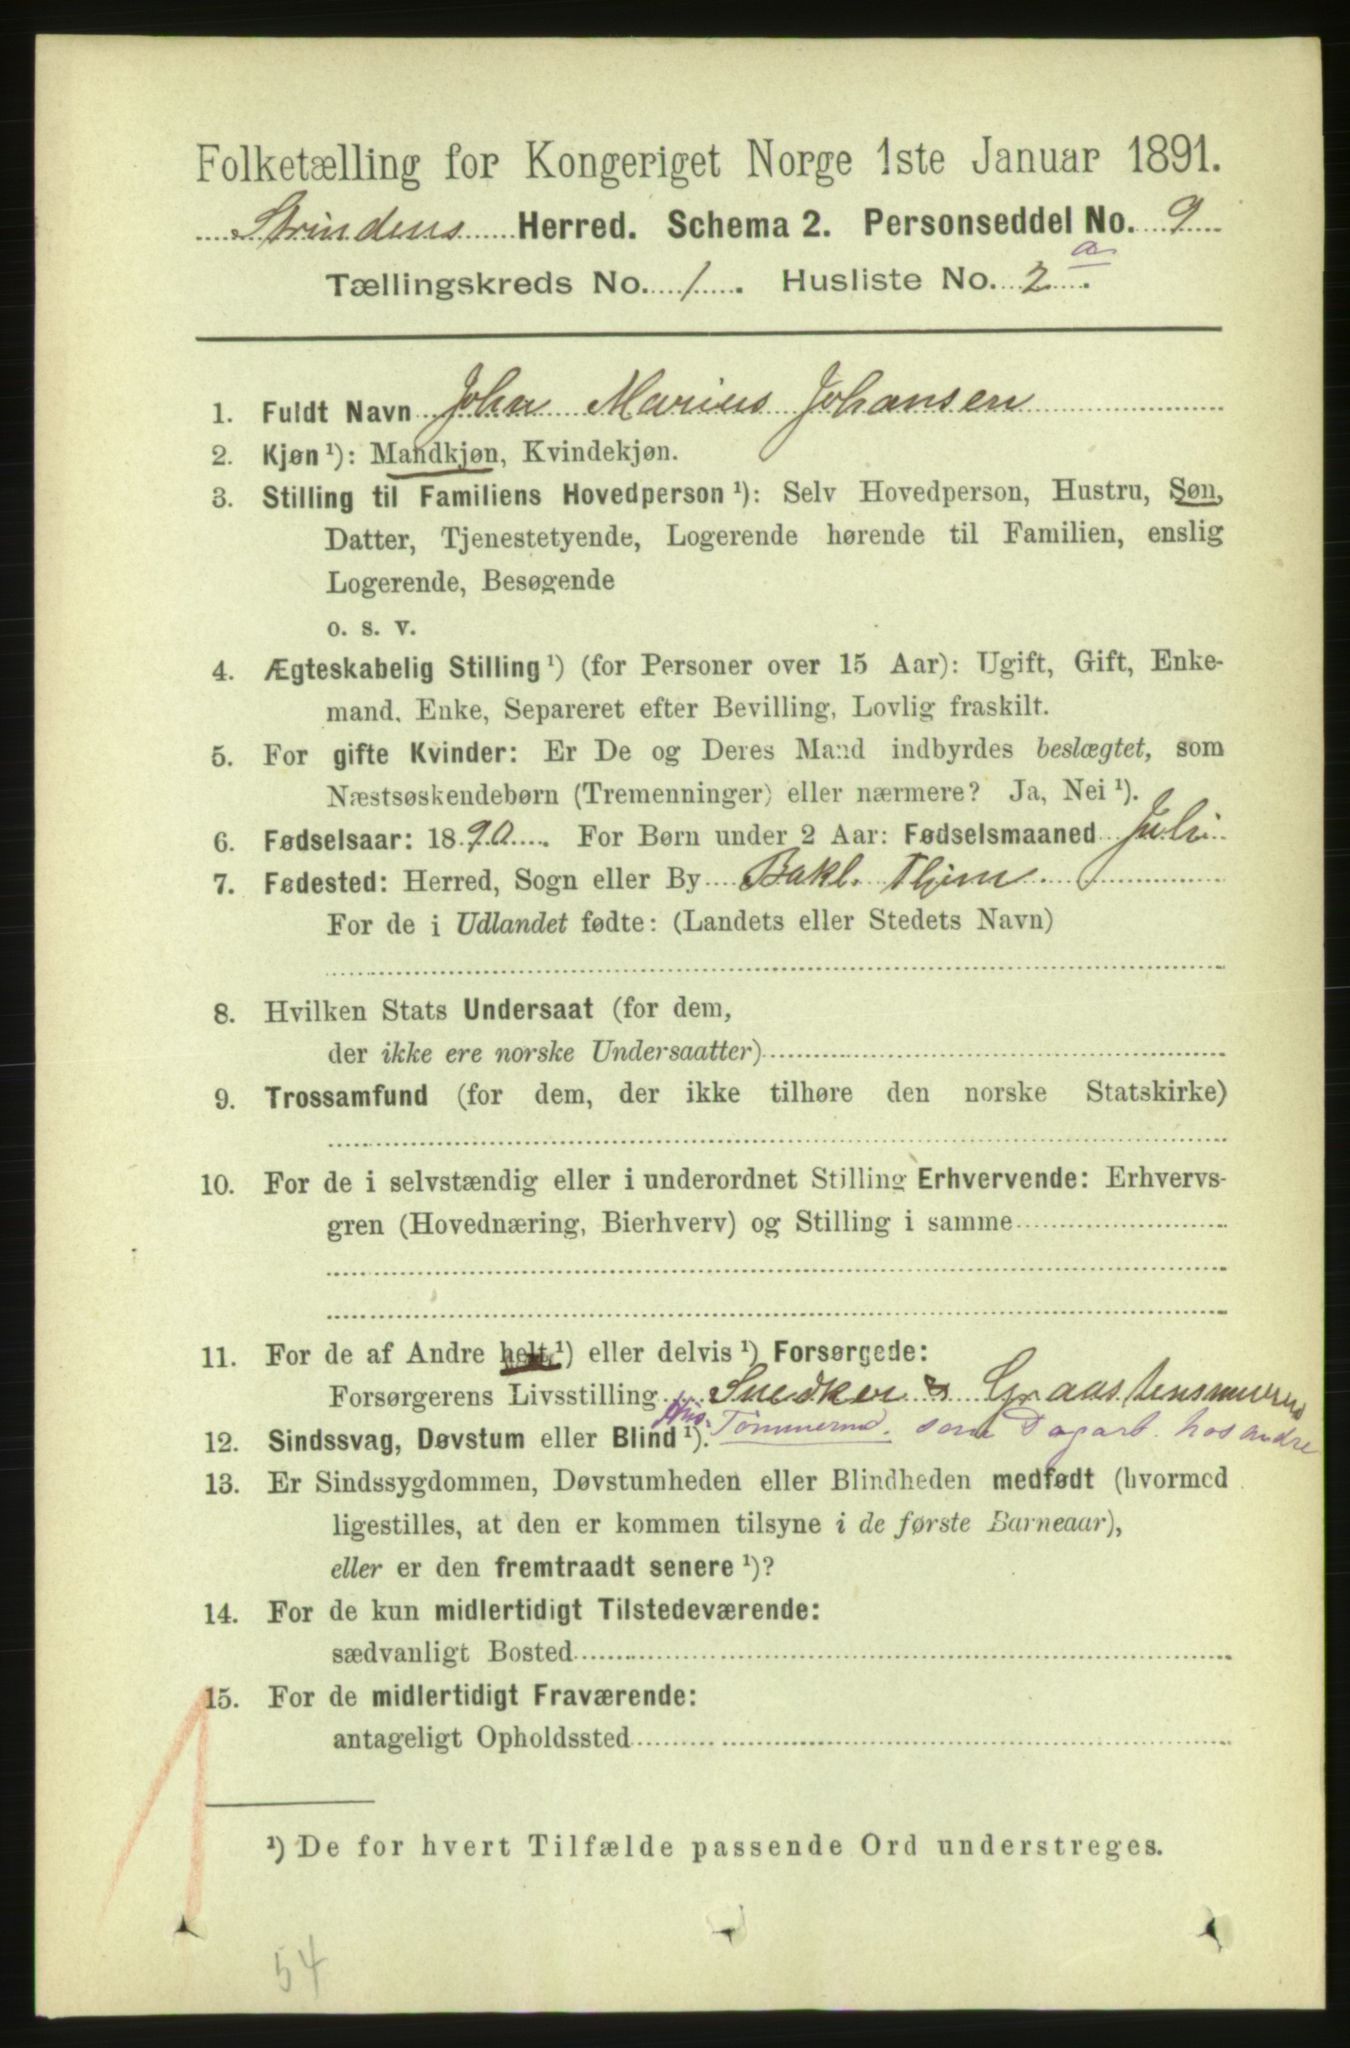 Folketælling for Kongeriget Norge 1ste Januar 1891.
Strindens Herred. Schema 2. Personseddel No. 9
Tællingskreds No. 1. Husliste No. 2 a.
1. Fuldt Navn John Marius Johansen
2. Kjøn ¹): Mandkjøn, Kvindekjøn.
3. Stilling til Familiens Hovedperson ¹): Selv Hovedperson, Hustru, Søn,
Datter, Tjenestetyende, Logerende hørende til Familien, enslig
Logerende, Besøgende
o. s. v.
4. Ægteskabelig Stilling ¹) (for Personer over 15 Aar): Ugift, Gift, Enke-
mand, Enke, Separeret efter Bevilling, Lovlig fraskilt.
5. For gifte Kvinder: Er De og Deres Mand indbyrdes beslægtet, som
Næstsøskendebørn (Tremenninger) eller nærmere? Ja, Nei ¹).
6. Fødselsaar: 1890. For Børn under 2 Aar: Fødselsmaaned Juli
7. Fødested: Herred, Sogn eller By Bakl. Thjem
For de i Udlandet fødte: (Landets eller Stedets Navn)
8. Hvilken Stats Undersaat (for dem,
der ikke ere norske Undersaatter)
9. Trossamfund (for dem, der ikke tilhøre den norske Statskirke)
10. For de i selvstændig eller i underordnet Stilling Erhvervende: Erhvervs-
gren (Hovednæring, Bierhverv) og Stilling i samme
11. For de af Andre helt ¹) eller delvis ¹) Forsørgede:
Forsørgerens Livsstilling Snedker & Graastensmurer
Tømmermd. som Dagarb. hos andre
12. Sindssvag, Døvstum eller Blind ¹).
13. Er Sindssygdommen, Døvstumheden eller Blindheden medfødt (hvormed
ligestilles, at den er kommen tilsyne i de første Barneaar),
eller er den fremtraadt senere ¹)?
14. For de kun midlertidigt Tilstedeværende:
sædvanligt Bosted
15. For de midlertidigt Fraværende:
antageligt Opholdssted
1
¹) De for hvert Tilfælde passende Ord understreges.
54